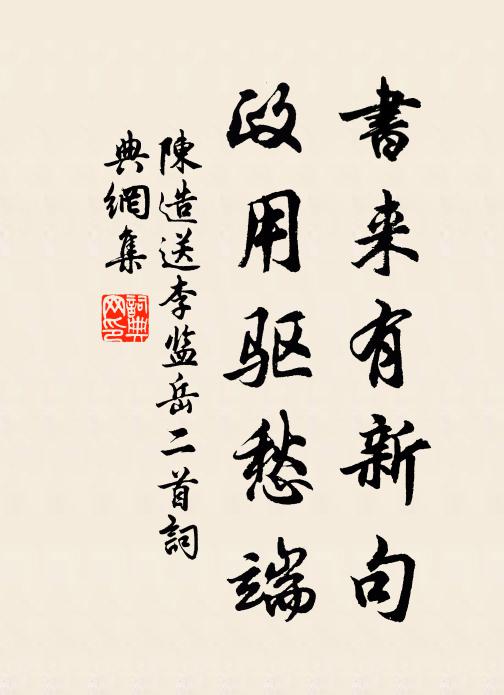 書来有新句
政用驱愁端
陳造送李监岳二首詞
典網集
詞典網印